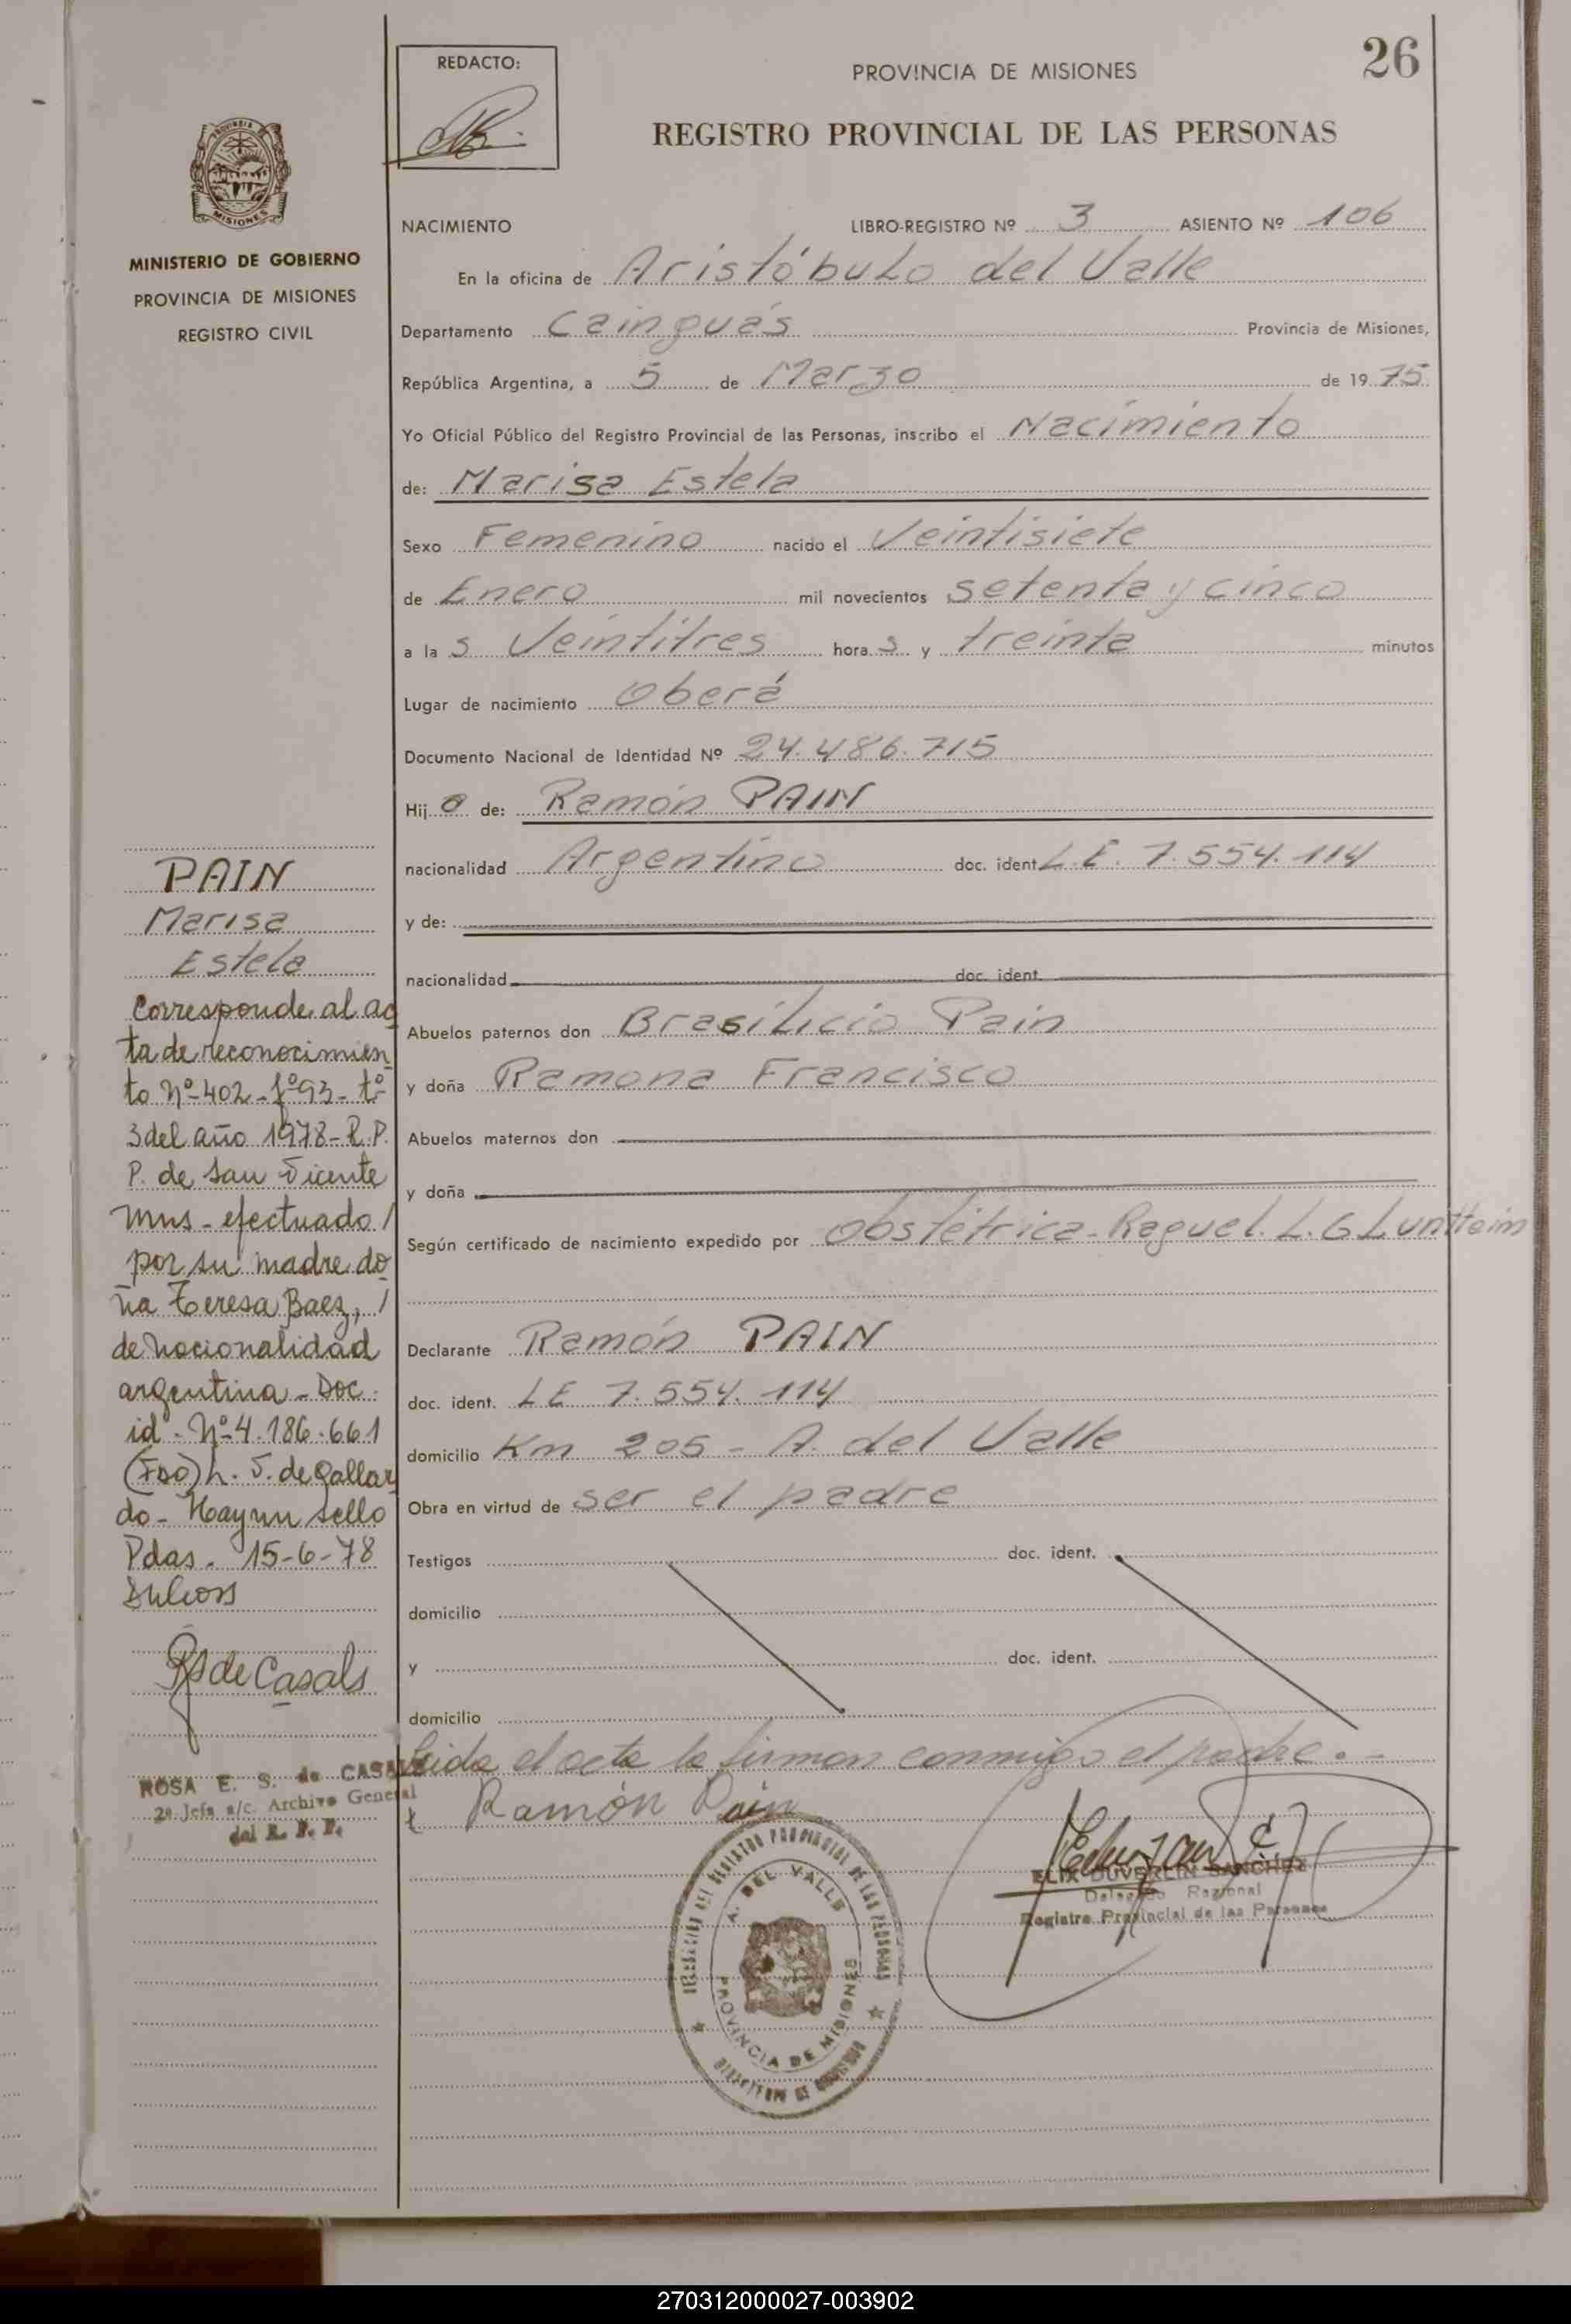 26
REDACTO:
PROVINCIA DE MISIONES
REGISTRO PROVINCIAL DE LAS PERSONAS
MISIONES
MINISTERIO DE GOBIERNO
PROVINCIA DE MISIONES
REGISTRO CIVIL
NACIMIENTO LIBRO-REGISTRO Nº 3 ASIENTO Nº 106
En la oficina de Aristóbulo del Valle
Departamento Cainguás Provincia de Misiones,
República Argentina, a 5 de Marzo de 1975
Yo Oficial Público del Registro Provincial de las Personas, inscribo el Nacimiento
de: Marisa Estela
Sexo Femenino nacido el Veintisiete
de Enero mil novecientos setenta y cinco
a la s Veintitres hora s y treinta minutos
Lugar de nacimiento Oberá
Documento Nacional de Identidad Nº 24.486.715
Hij a de: Ramón PAIN
nacionalidad Argentino doc. ident L.E. 7.554.114
y de:
nacionalidad doc. ident.
Abuelos paternos don Brasilicio Pain
y doña Ramona Francisco
Abuelos maternos don
y doña
Según certificado de nacimiento expedido por Obstétrica-Raquel. L. G
Declarante Ramón PAIN
doc. ident. LE 7.554.114
domicilio Km 205 - A. del Valle
Obra en virtud de ser el padre
Testigos doc. ident.
domicilio
y doc. ident.
domicilio
Leida el acta la firman conmigo el padre.-
Ramón Pain
PAIN
Marisa
Estela
Corresponde al ac
ta de reconocimien
to Nº-402-fº93-tº-
3 del año 1978-R.P.
P. de San Vicente
Mns-efectuado/
por su madre do
ña Teresa Baez, /
de nacionalidad
argentina-Doc.
id-Nº4.186.661
(Fdo) h. J. de Gallar
do-Hay un sello
Pdas. 15-6-78
RS de Casals
ROSA E. S. de CASALS
2ª Jefa a/c. Archivo General
del R. P. P.
REGISTRO PROVINCIAL DE LAS PERSONAS
A. DEL VALLE
PROVINCIA DE MISIONES
ELIX DUVERLIN SANCHEZ
Delegado Regional
Registro Provincial de las Personas
270312000027-003902